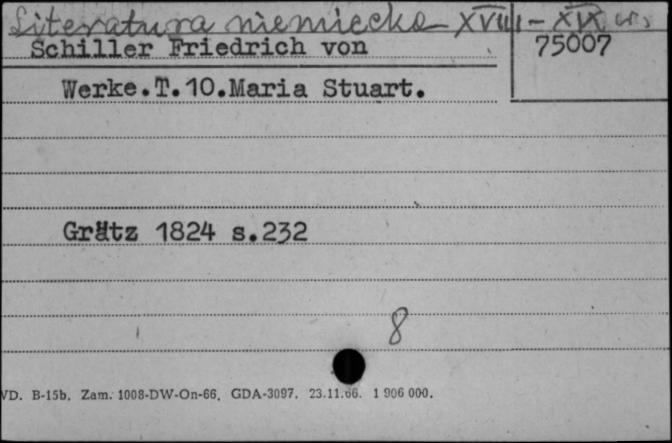 Literatura niemiecka XVIII - XIX w.
Schiller Friedrich von
75007
Werke.T.10.Maria Stuart.
Grätz 1824 s.232
8
VD. B-15b. Zam. 1008-DW-On-66. GDA-3097. 23.11.66. 1 906 000.